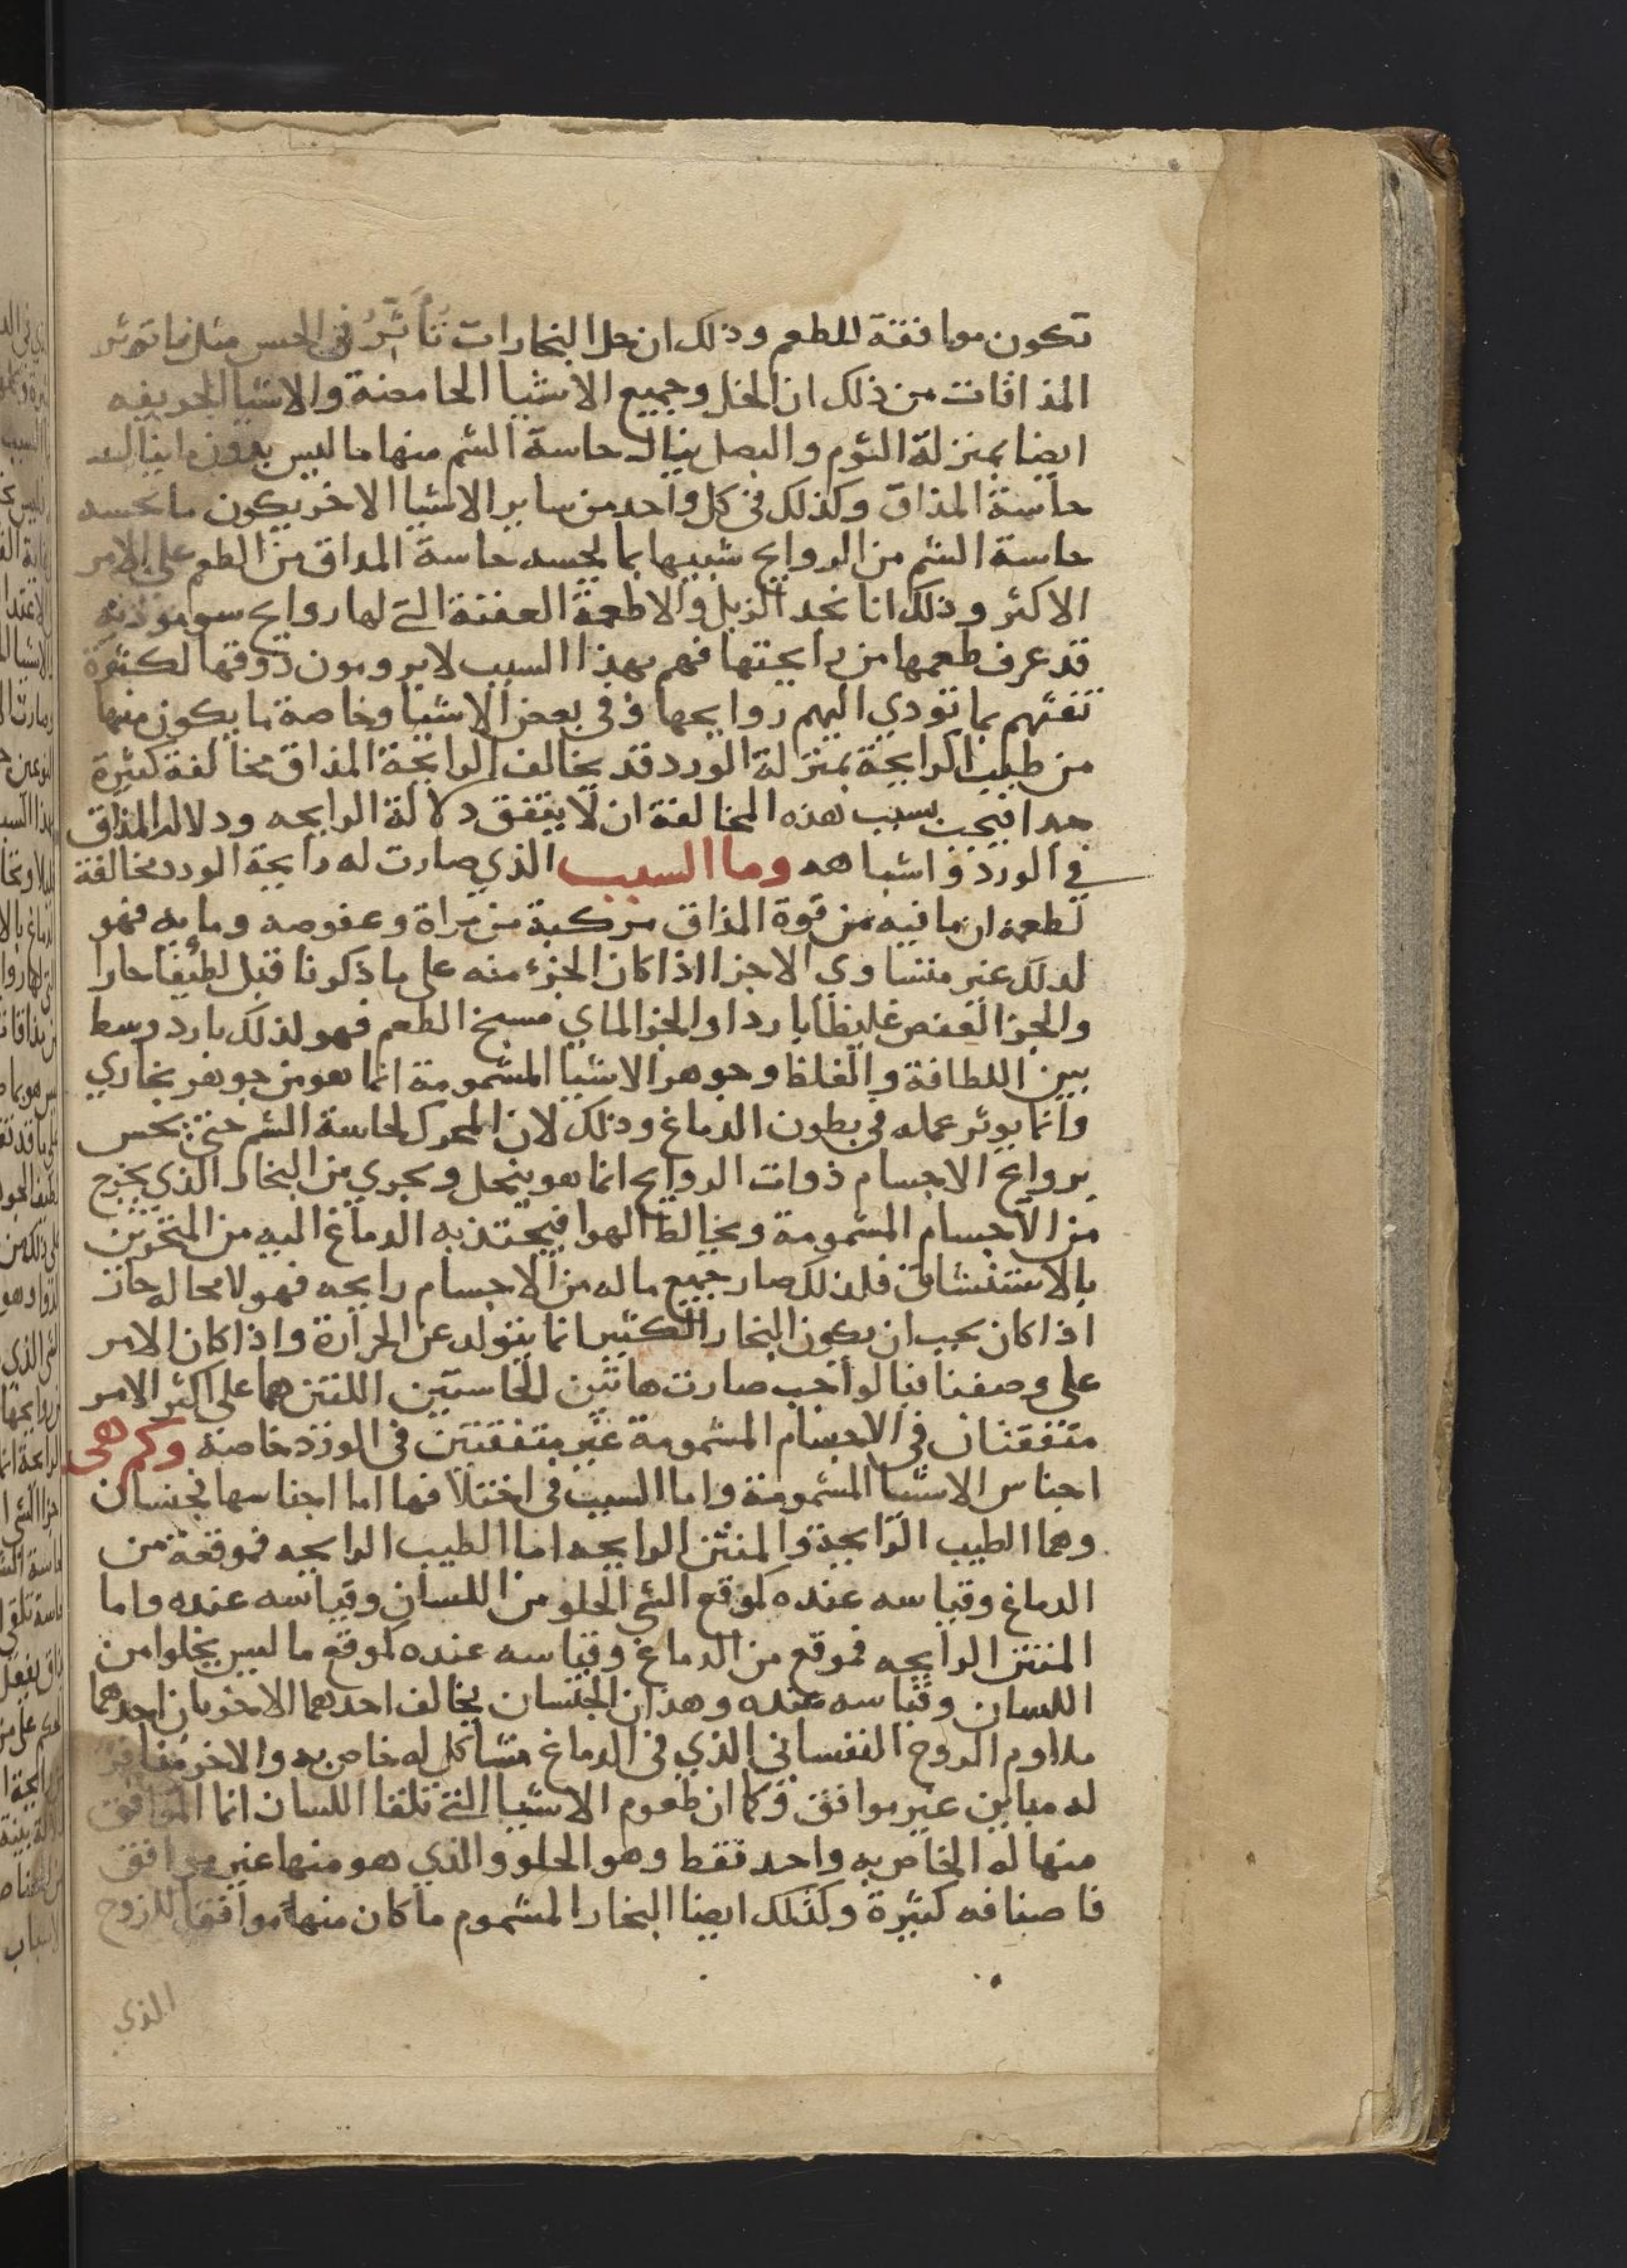 تكون موافقة للطعم وذلك ان جل البخارات تأثر في الحس مثل ما تؤثر
المذاقات من ذلك ان الخل وجميع الاشيا الحامضة والاشيا الحريفه
ايضا بمنزلة الثوم والبصل ينال حاسة الشم منها ما ليس بدون ما ينال
حاسة المذاق وكذلك في كل واحد من ساير الاشيا الاخر يكون ما تحسه
حاسة الشم من الروايح شبيها بما تحسه حاسة المداق من الطعم على الامر
الاكثر وذلك انا نجد الزبل والاطعمة العفنة التي لها روايح سو موذيه
قد عرف طعمها من رايحتها فهم بهذا السبب لا يرومون ذوقها لكثرة
ثقتهم بما تودي اليهم روايحها وفي بعض الاشيا وخاصة ما يكون منها
من طيب الرايحة بمنزلة الورد قد يخالف الرايحة المذاق مخالفة كثيرة
جدا فيجب بسبب هذه المخالفة ان لا يتفق دلالة الرايحه ودلالة المذاق
في الورد واشباهه وما السبب الذي صارت له رايحة الورد مخالفة
لطعمه ان ما فيه من قوة المذاق مركبة من مراة وعفوصه ومايه فهو
لدلك غير متساوي الاجزا اذا كان الجزء منه على ما ذكرنا قبل لطيفا حارا
والجز العفص غليظا باردا والجز الماي مسيخ الطعم فهو لذلك بارد وسط
بين اللطافة والغلظ وجوهر الاشيا المشمومة انما هو من جوهر بخاري
وانما يوثر عمله في بطون الدماغ وذلك لان المحرك لحاسة الشم حتى تحس
بروايح الاجسام ذوات الروايح انما هو ينحل ويجري من البخار الذي يخرج
من الاجسام المشمومة ويخالط الهوا فيجتذبه الدماغ اليه من المنخرين
بالاستنشاق فلذلك صار جميع ما له من الاجسام رايحه فهو لا محاله حار
اذا كان يجب ان يكون البخار الكثير انما يتولد عن الحرارة واذا كان الامر
على وصفنا فبالواجب صارت هاتين الحاستين اللتين هما على اكثر الامر
متفقتان في الاجسام المشمومة غير متفقتين في الورد خاصة وكم هي
اجناس الاشيا المشمومة واما السبب في اختلافها اما اجناسها فجنسان
وهما الطيب الرايحة والمنتن الرايحه اما الطيب الرايحه فموقعه من
الدماغ وقياسه عنده كموقع الشي الحلو من اللسان وقياسه عنده واما
المنتن الرايحه فموقع من الدماغ وقياسه عنده كموقع ما ليس بحلوا من
اللسان وقياسه عنده وهذان الجنسان يخالف احدهما الاخر بان احدهما
ملاوم الروح النفساني الذي في الدماغ مشاكل له خاص به والاخر منافر
له مباين غير موافق وكما ان طعوم الاشيا التي تلقا اللسان انما الموافق
منها له الخاص به واحد فقط وهو الحلو والذي هو منها غير موافق
فاصنافه كثيرة وكذلك ايضا البخار المشموم ما كان منها موافقا للروح
الذي